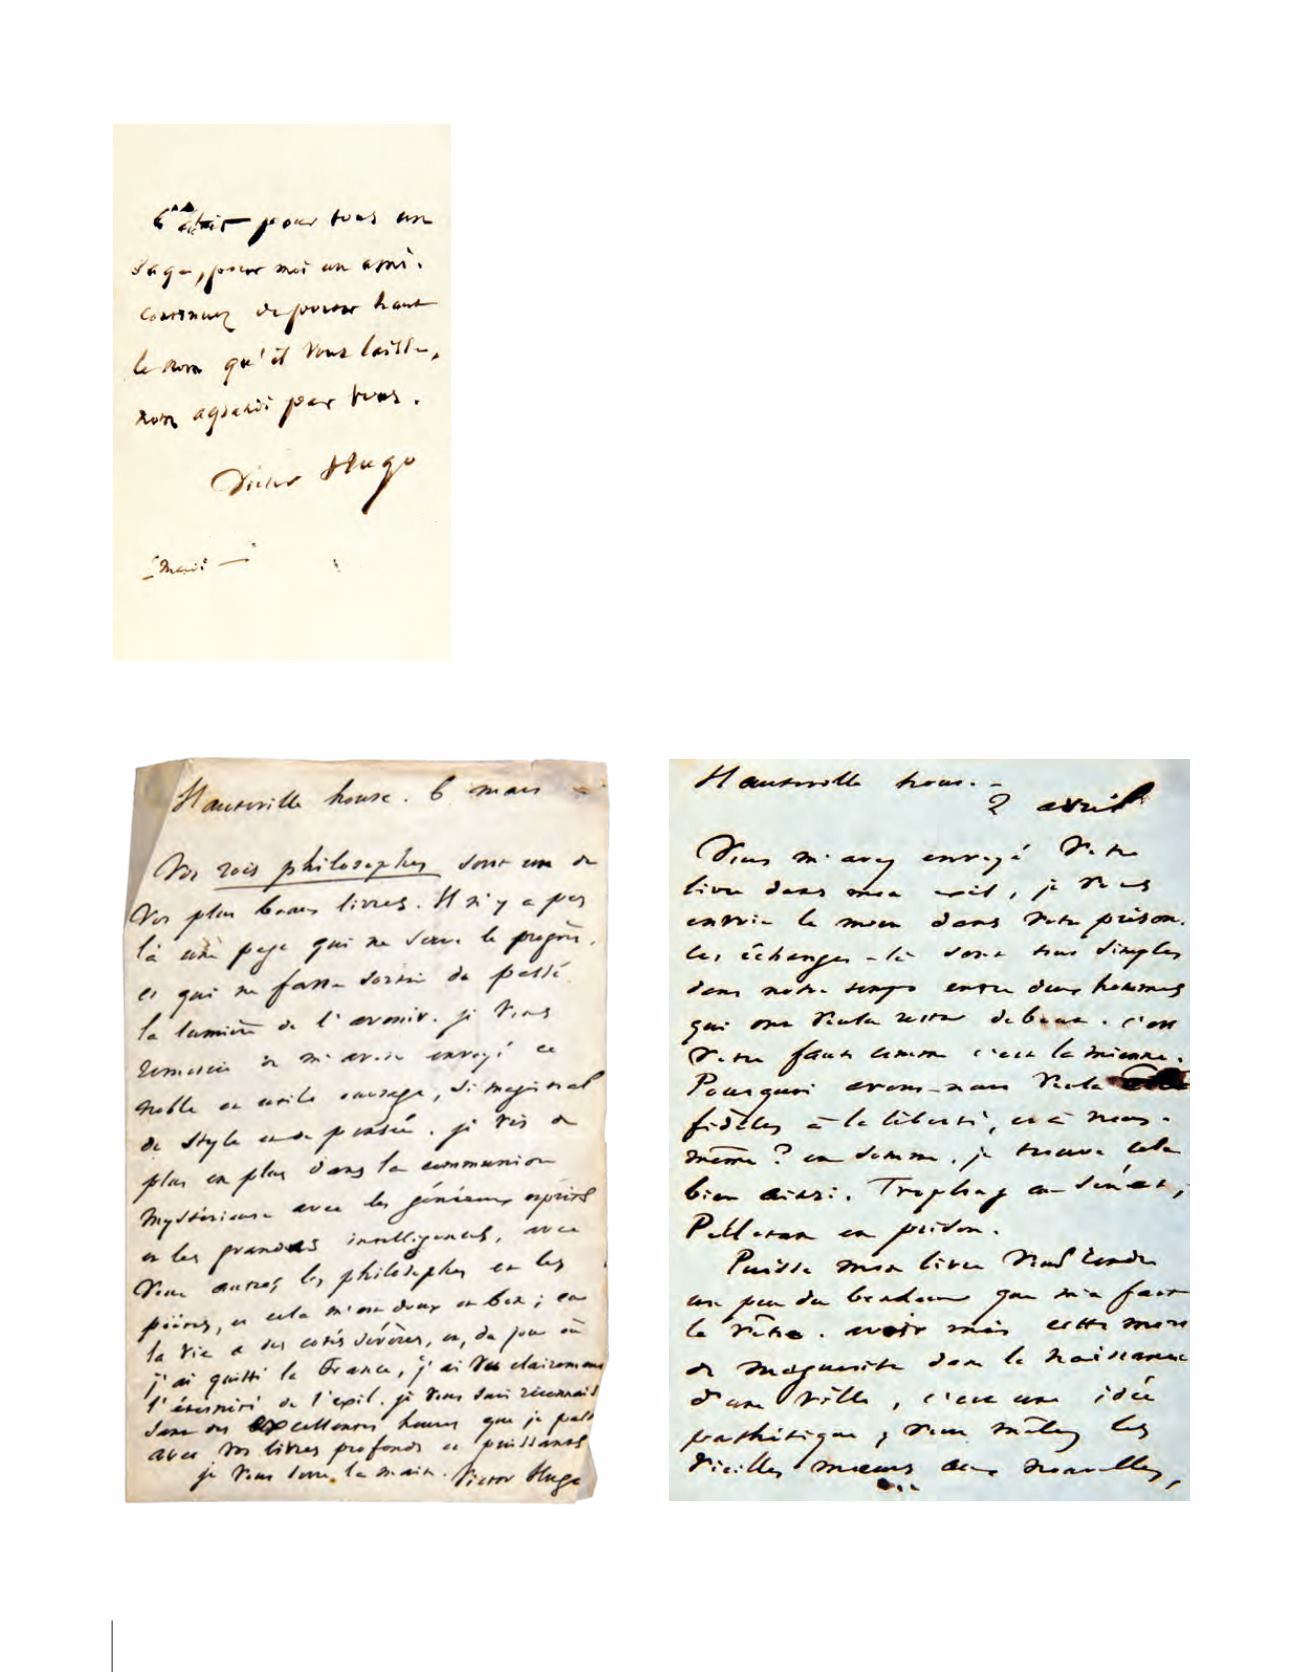 C'était pour tous un
sage, pour moi un ami.
Continuez de porter haut
le nom qu'il vous laisse,
nom agrandi par vous.
Victor Hugo
mardi
Hauteville house. 6 mars
Vos rois philosophes sont un de
vos plus beaux livres. Il n'y a pas
là une page qui ne serve le progrès,
et qui ne fasse sortir du passé
la lumière de l'avenir. je vous
remercie de m'avoir envoyé ce
noble et utile ouvrage, si magistral
de style et de pensée. je vis de
plus en plus dans la communion
mystérieuse avec les généreux esprits
et les grandes intelligences, avec
vous autres, les philosophes et les
poètes, et cela m'est doux et bon ; car
la vie a ses côtés sévères, et, du jour où
j'ai quitté la France, j'ai vu clairement
l'éternité de l'exil. je vous suis reconnaiss
dans des excellentes heures que je passe
avec vos livres profonds et puissants
je vous serre la main. Victor Hugo
Hauteville house.
2 avril
Vous m'avez envoyé votre
livre dans mon exil, je vous
envoie le mien dans votre prison.
ces échanges-là sont tous simples
dans notre temps entre deux hommes
qui ont voulu rester debout. c'est
votre faute comme c'est la mienne.
Pourquoi avons-nous voulu
fidèles à la liberté, et à nous-
même ? en somme, je trouve cela
bien ainsi. Troplong au sénat,
Pelletan en prison.
Puisse mon livre vous rendre
un peu du bonheur que m'a fait
le vôtre. avoir mis cette mort
de marguerite dans la naissance
d'une ville, c'est une idée
pathétique ; vous mêlez les
vieilles mœurs aux nouvelles,